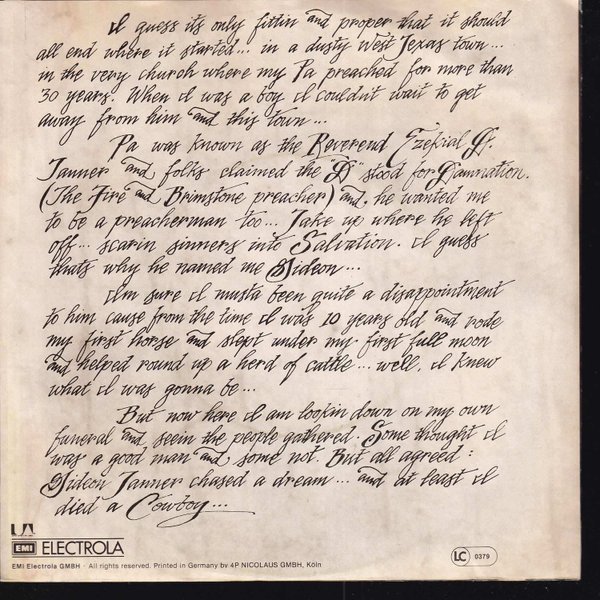 I guess its only fittin and proper that it should
all end where it started... in a dusty West Texas town...
in the very church where my Pa preached for more than
30 years. When I was a boy I couldn't wait to get
away from him and this town...
Pa was known as the Reverend Ezekial D.
Tanner and folks claimed the "D" stood for Damnation.
(The Fire and Brimstone preacher) and, he wanted me
to be a preacherman too... Take up where he left
off... scarin sinners into Salvation. I guess
thats why he named me Gideon...
I'm sure I musta been quite a disappointment
to him cause from the time I was 10 years old and rode
my first horse and slept under my first full moon
and helped round up a herd of cattle... well, I knew
what I was gonna be...
But now here I am lookin down on my own
funeral and seein the people gathered. Some thought I
was a good man and some not. But all agreed:
Gideon Tanner chased a dream... and at least I
died a Cowboy...
UA
EMI ELECTROLA
EMI Electrola GMBH · All rights reserved. Printed in Germany by 4P NICOLAUS GMBH, Köln
LC 0379